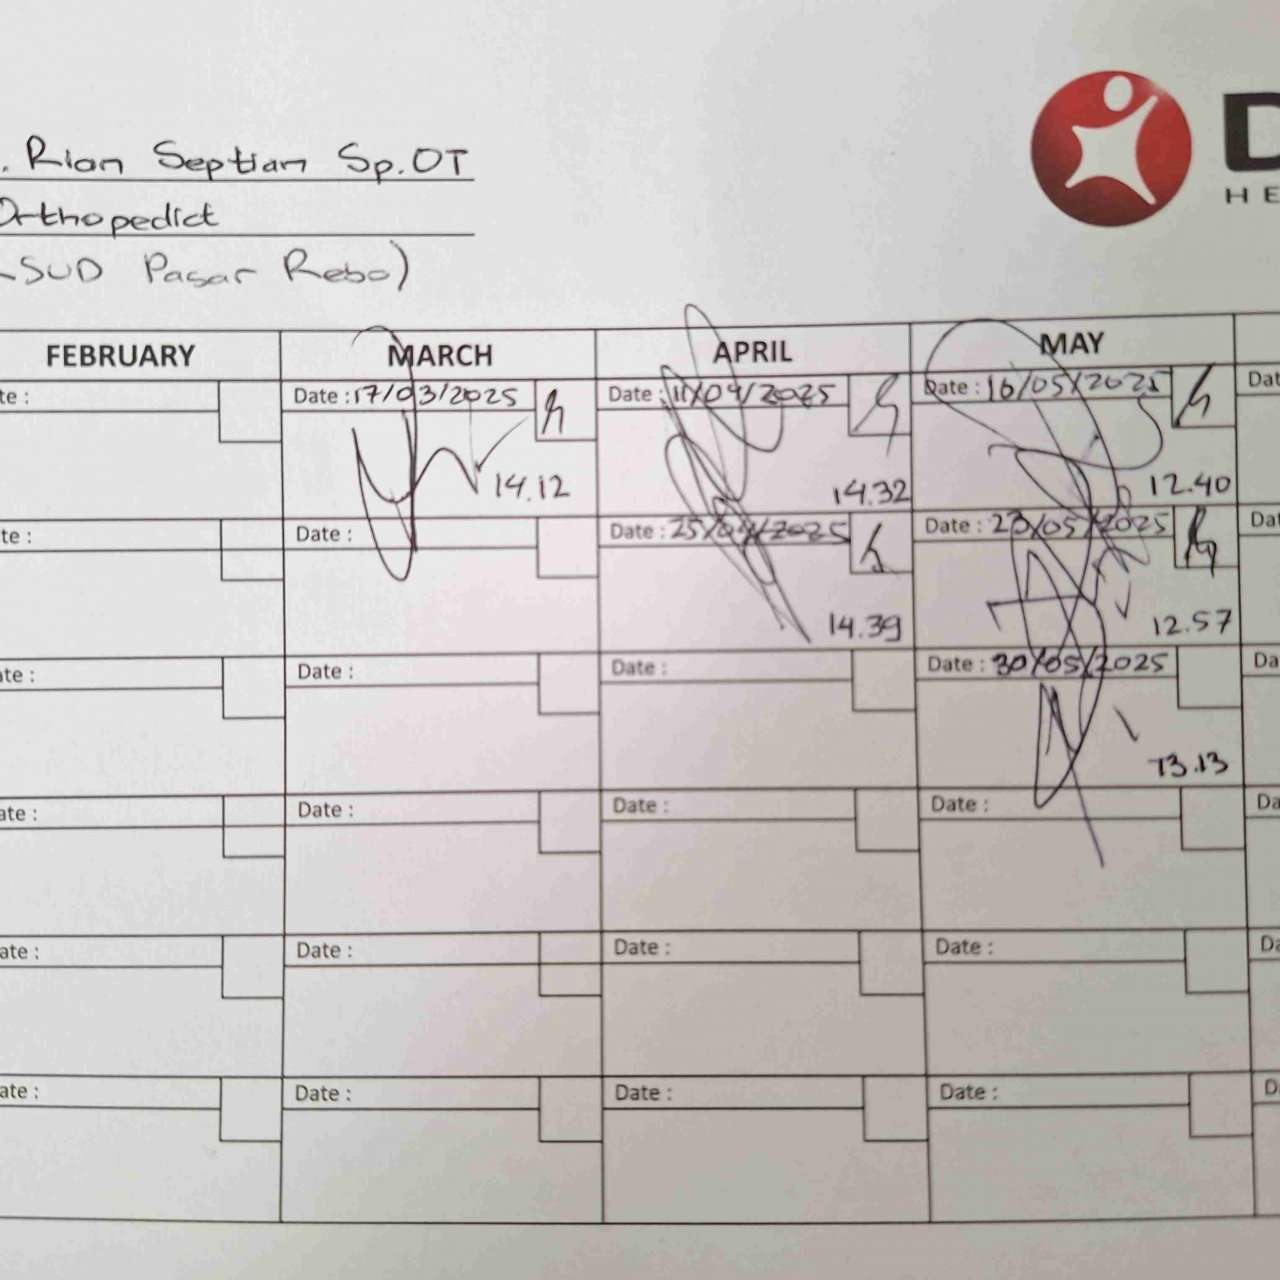 . Rian Septian Sp.OT
Orthopedict
SUD Pasar Rebo)
D
HE
FEBRUARY MARCH APRIL MAY
te : Date : 17/03/2025 Date : 11/04/2025 Date : 16/05/2025 Dat
14.12 14.32 12.40
te : Date : Date : 25/04/2025 Date : 23/05/2025 Dat
14.39 12.57
ate : Date : Date : Date : 30/05/2025 Da
13.13
ate : Date : Date : Date : Da
ate : Date : Date : Date : Da
ate : Date : Date : Date : D